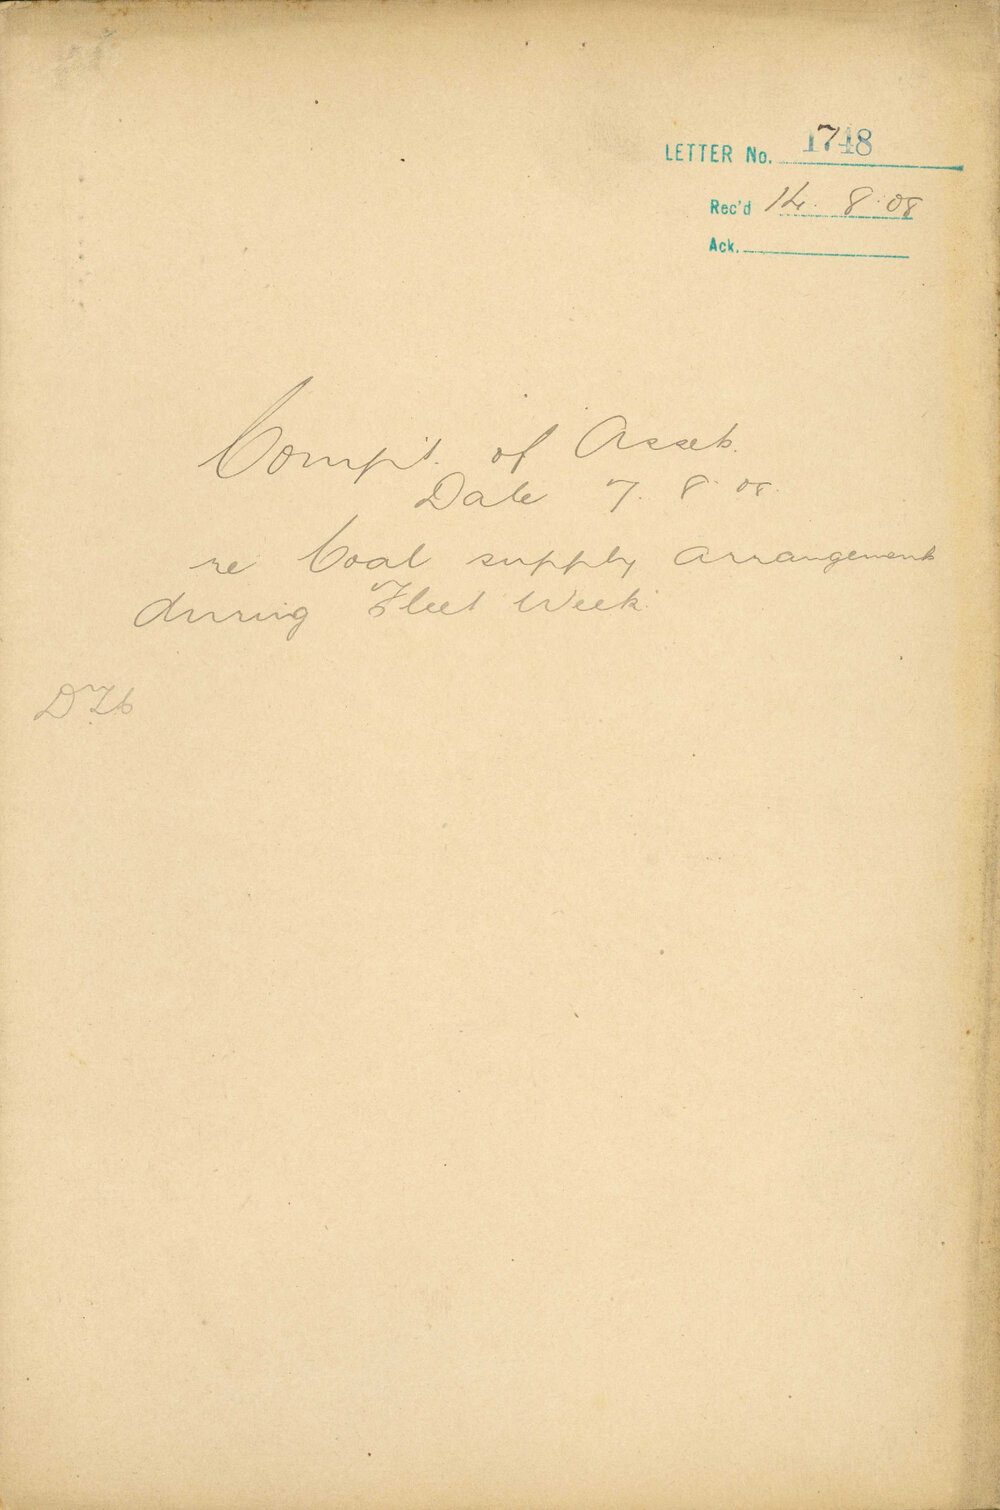 LETTER No. 1748
Rec'd 14. 8. 08
Ack.
Compt. of Assets.
Date 7. 8. 08.
re Coal supply arrangements
during Fleet Week.